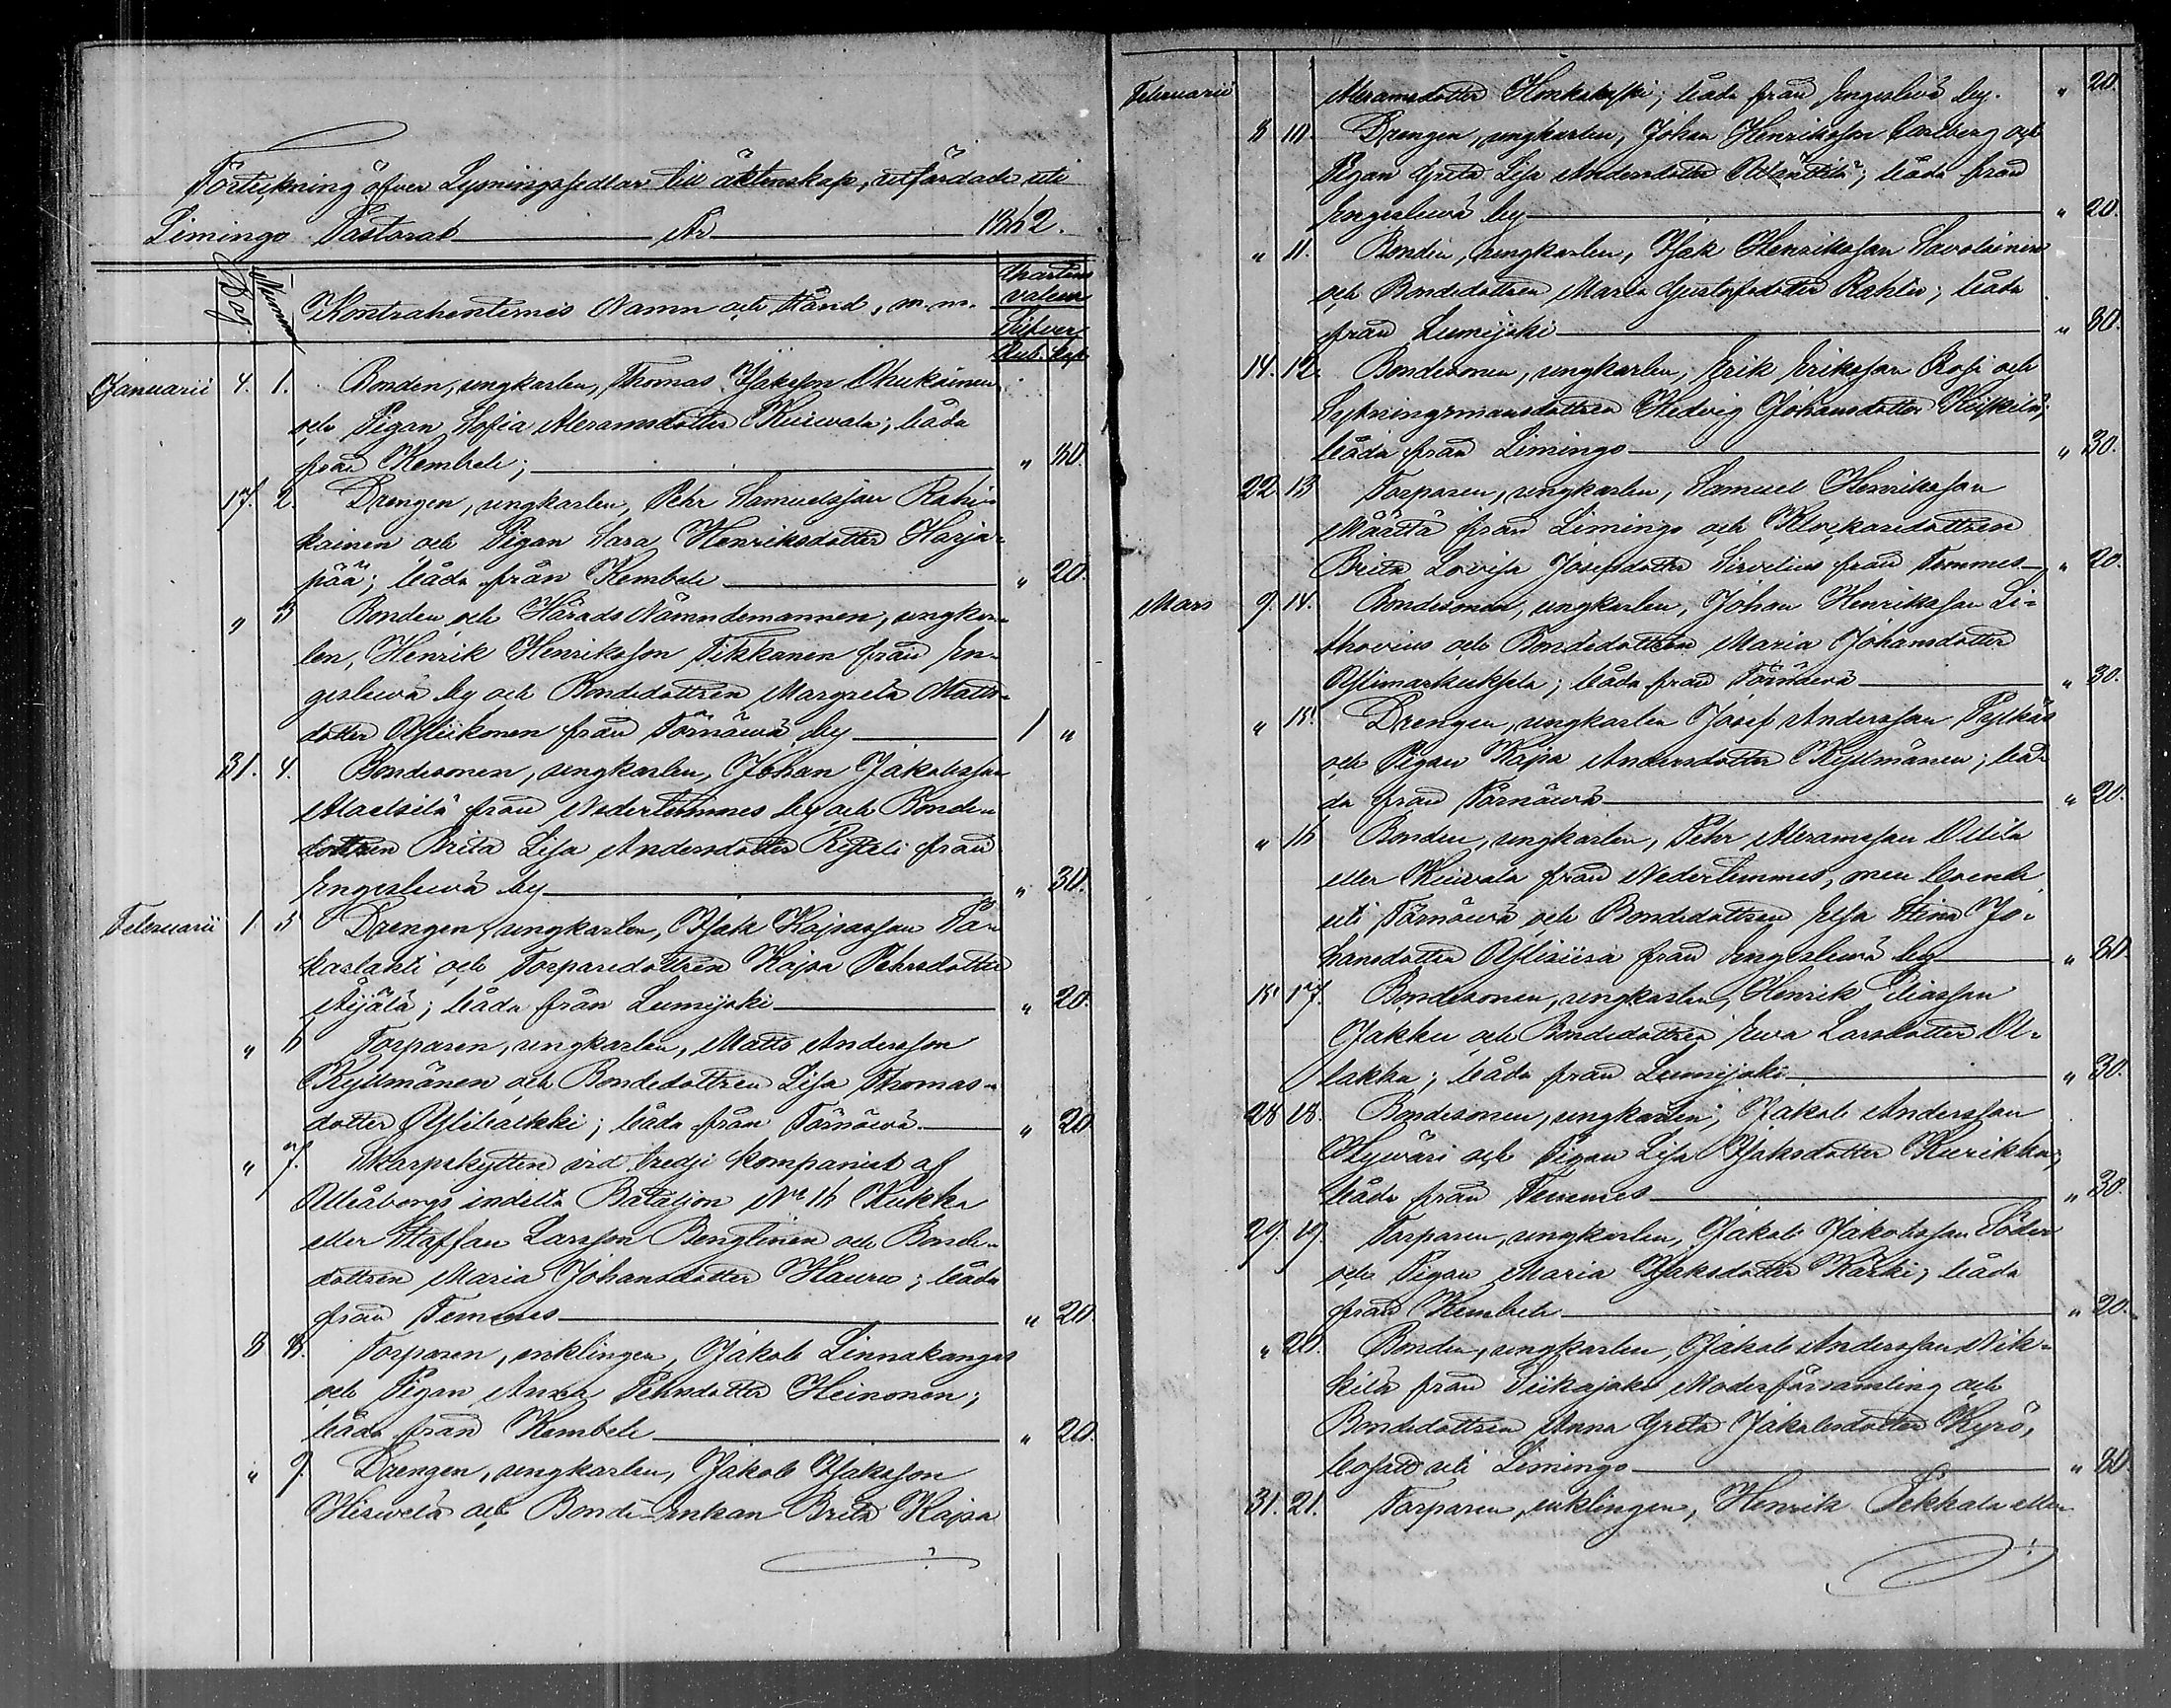 Förteckning öfver Lysningssedlar till äktenskap, utfärdade uti
Limingo Pastorat År 1862.
Dag. Nummer Kontrahenternes Namn och Stånd, m. m. Chartans valeur Silfver Rub. Kop.
Januarii 4. 1. Bonden, ungkarlen, Thomas Isaksson Okukainen
och Pigan Sofia Abramsdotter Kuiwala; båda
från Kembele; " 30.
17. 2. Drengen, ungkarlen, Pehr Samuelsson Rahi-
kainen och Pigan Sara Henriksdotter Harja-
pää; båda från Kembele " 20.
" 3 Bonden och Härads Nämndemannen, ungkar-
len, Henrik Henriksson Tikkanen från En-
geslewä by och Bondedottren Margreta Matts-
dotter Ylikonen från Törnäwä by 1 "
31. 4. Bondesonen, ungkarlen, Johan Jakobsson
från Nedertemmes by och Bonde-
dottren Brita Lisa Andersdotter från
Engeslewä by " 30.
Februarii 1 5 Drengen, ungkarlen, Isak Kajsasson Pa-
kaslahti och Torparedottren Kajsa Pehrsdotter
Äijälä; båda från Lumijoki " 20.
" 6 Torparen, ungkarlen, Matts Andersson
Kyllmänen och Bondedottren Lisa Thomas-
dotter; båda från Törnäwä " 20
" 7. Skarpskytten vid tredje kompaniet af
Uleåborgs indelta Bataljon No 16 Kukka
eller Staffan Larsson Bengtinen och Bonde-
dottren Maria Johansdotter Hauru; båda
från Temmes " 20.
8 8. Torparen, enklingen, Jakob Linnakangas
och Pigan Anna Pehrsdotter Heinonen;
båda från Kembele " 20.
" 9. Drengen, ungkarlen, Jakob Isaksson
Hiswelä och Bonde-Enkan Brita Kajsa
Februarii Abramsdotter; båda från Engeslewä by. " 20.
8 10. Drengen, ungkarlen, Johan Henriksson Carlberg och
Pigan Greta Lisa Andersdotter; båda från
Engeslewä by " 20.
" 11. Bonden, ungkarlen, Isak Henriksson Savolainen
och Bondedottren Maria Gustafsdotter Rahko; båda
från Lumijoki " 30.
14. 12. Bondesonen, ungkarlen, Erik Eriksson Rosi och
Hedvig Johansdotter Keiskilä;
båda från Limingo " 30.
22 13 Torparen, ungkarlen, Samuel Henriksson
Määttä från Limingo och Klockaredottren
Brita Lovisa Josefsdotter Sirvelius från Temmes " 20.
Mars 9. 14. Bondesonen, ungkarlen, Johan Henriksson Li-
thovius och Bondedottren Maria Johansdotter
Ylimarkuksela; båda från Törnäwä " 30.
" 15. Drengen, ungkarlen Josef Andersson Pylkäs
och Pigan Kajsa Andersdotter Kyllmänen; bå-
da från Törnäwä " 20.
" 16 Bonden, ungkarlen, Pehr Abramsson Ollila
eller Kuiwala från Nedertemmes, men boende
uti Törnäwä och Bondedottren Elsa Stina Jo-
hansdotter från Engeslewä by " 30
15 17. Bondesonen, ungkarlen, Henrik Eliasson
Jakku och Bondedottren Ewa Larsdotter Ol-
lakka; båda från Lumijoki " 30.
28 18. Bondesonen, ungkarlen, Jakob Andersson
Hywäri och Pigan Lisa Isaksdotter Kurikka;
båda från Temmes " 30.
29. 19. Torparen, ungkarlen, Jakob Jakobsson Söder
och Pigan Maria Isaksdotter Karki; båda
från Kembele " 20.
" 20. Bonden, ungkarlen, Jakob Andersson Nik-
kilä från Siikajoki Moderförsamling och
Bondedottren Anna Greta Jakobsdotter Kyrö,
bosatt uti Limingo " 30
31. 21. Torparen, enklingen, Henrik Pekkala eller